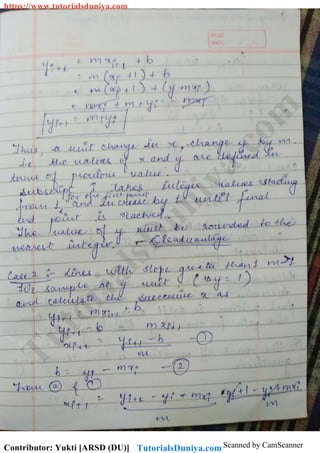 https://www.tutorialsduniya.com
PAGE:
DATE:
y_{i+1} = m x_{i+1} + b
= m(x_i + 1) + b
= m(x_i + 1) + (y_i - mx_i)
= mx_i + m + y_i - mx_i
y_{i+1} = m + y_i
Thus, a unit change in x, change y by m.
i.e. the values of x and y are defined in
terms of previous value.
Subscript i takes integer values starting
from 1 for the first point and increase by 1 until final
end point is reached.
The value of y must be rounded to the
nearest integer. - Disadvantage
Case 2 :- Lines with slope greater than 1 m>1
For sample at y unit (Δy = 1)
and calculate the successive x as
y_{i+1} = mx_{i+1} + b
y_{i+1} - b = mx_{i+1}
x_{i+1} = y_{i+1} - b / m - ①
b = y_i - mx_i - ②
From ② & ①
x_{i+1} = y_{i+1} - y_i + mx_i / m , y_i + 1 - y_i + mx_i / m
Contributor: Yukti [ARSD (DU)] TutorialsDuniya.com Scanned by CamScanner